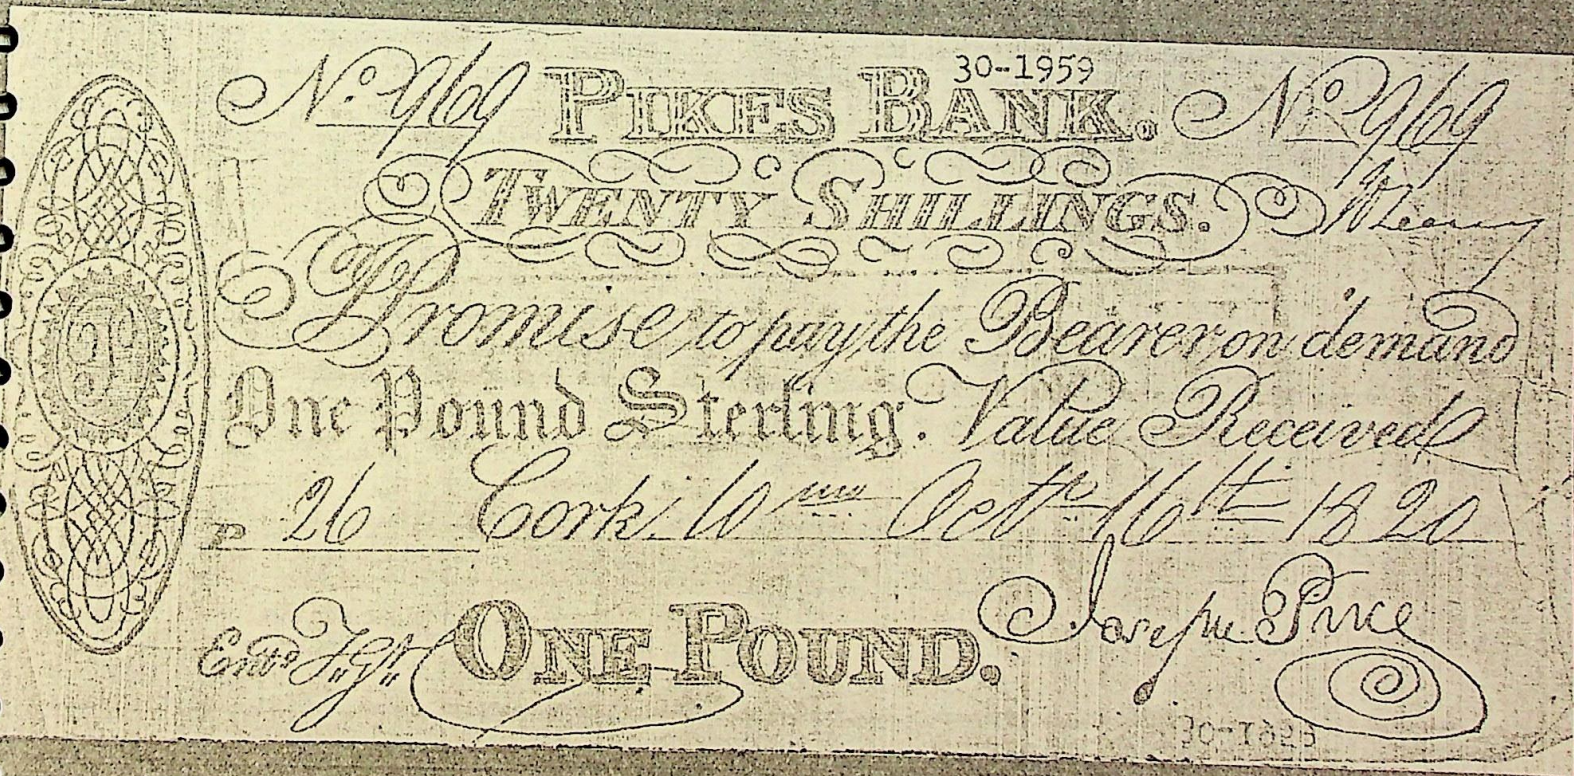 30-1959
No. 969 PIKES BANK. No. 969
TWENTY SHILLINGS.
I Promise to pay the Bearer on demand
One Pound Sterling. Value Received
26 Cork. 10mo Octr 16th 1820
Entd ONE POUND. Joseph Pike